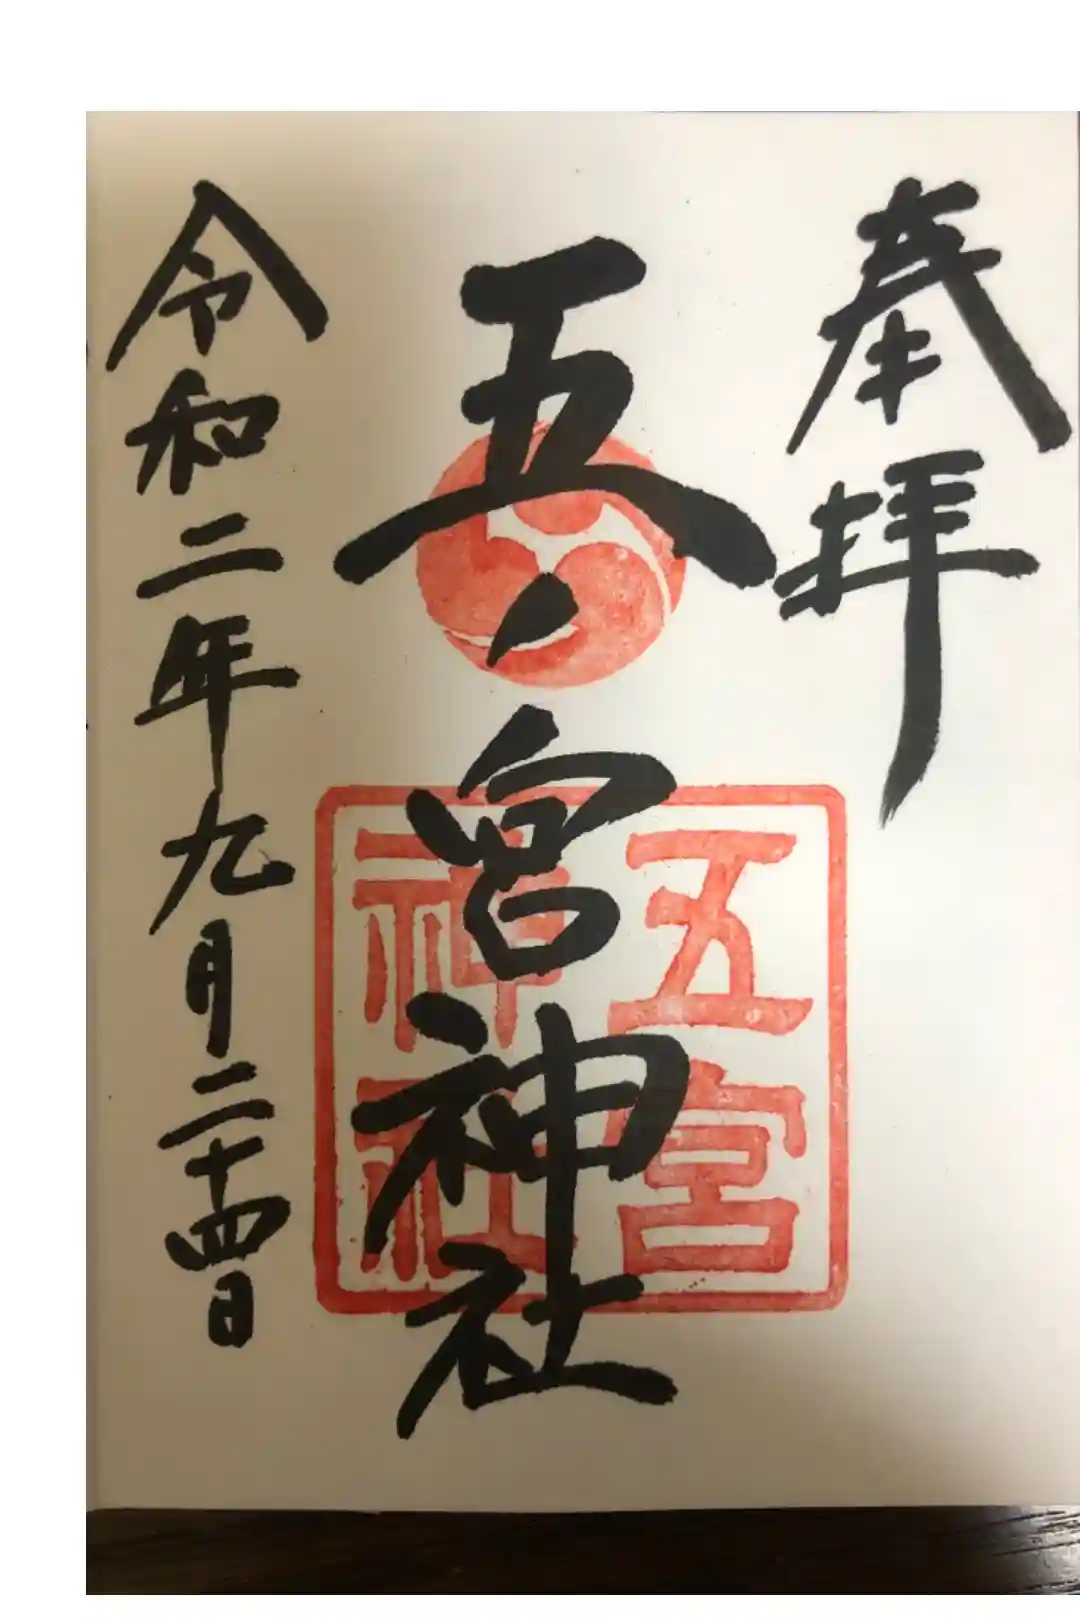 奉拝
五ノ宮神社
五宮
神社
令和二年九月二十四日